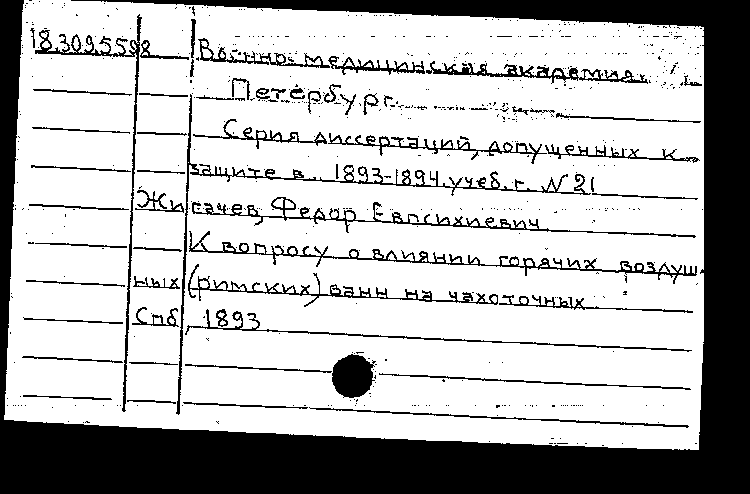 18.3095598 Военно-медицинская академия.
Петербург.
Серия диссертаций, допущенных к
защите в 1893-1894.учеб.г. N 21
Жигачев, Федор Евпсихиевич
К вопросу о влиянии горячих воздуш
ных (римских) ванн на чахоточных
Спб, 1893